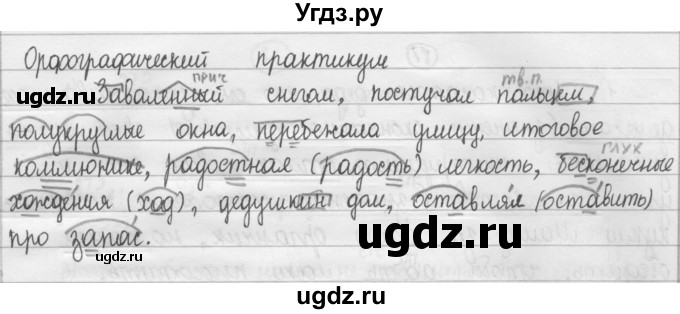 Угдз.ру
Орфографический практикум
прич тв.п.
Заваленный снегом, постучал пальцем,
полукруглые окна, перебежала улицу, итоговое
глух
коммюнике, радостная (радость) легкость, бесконечные
хождения (ход), дедушкин дом, оставлял (оставить)
про запас.
ugdz.ru
ugdz.ru
ugdz.ru
ugdz.ru
ugdz.ru
ugdz.ru